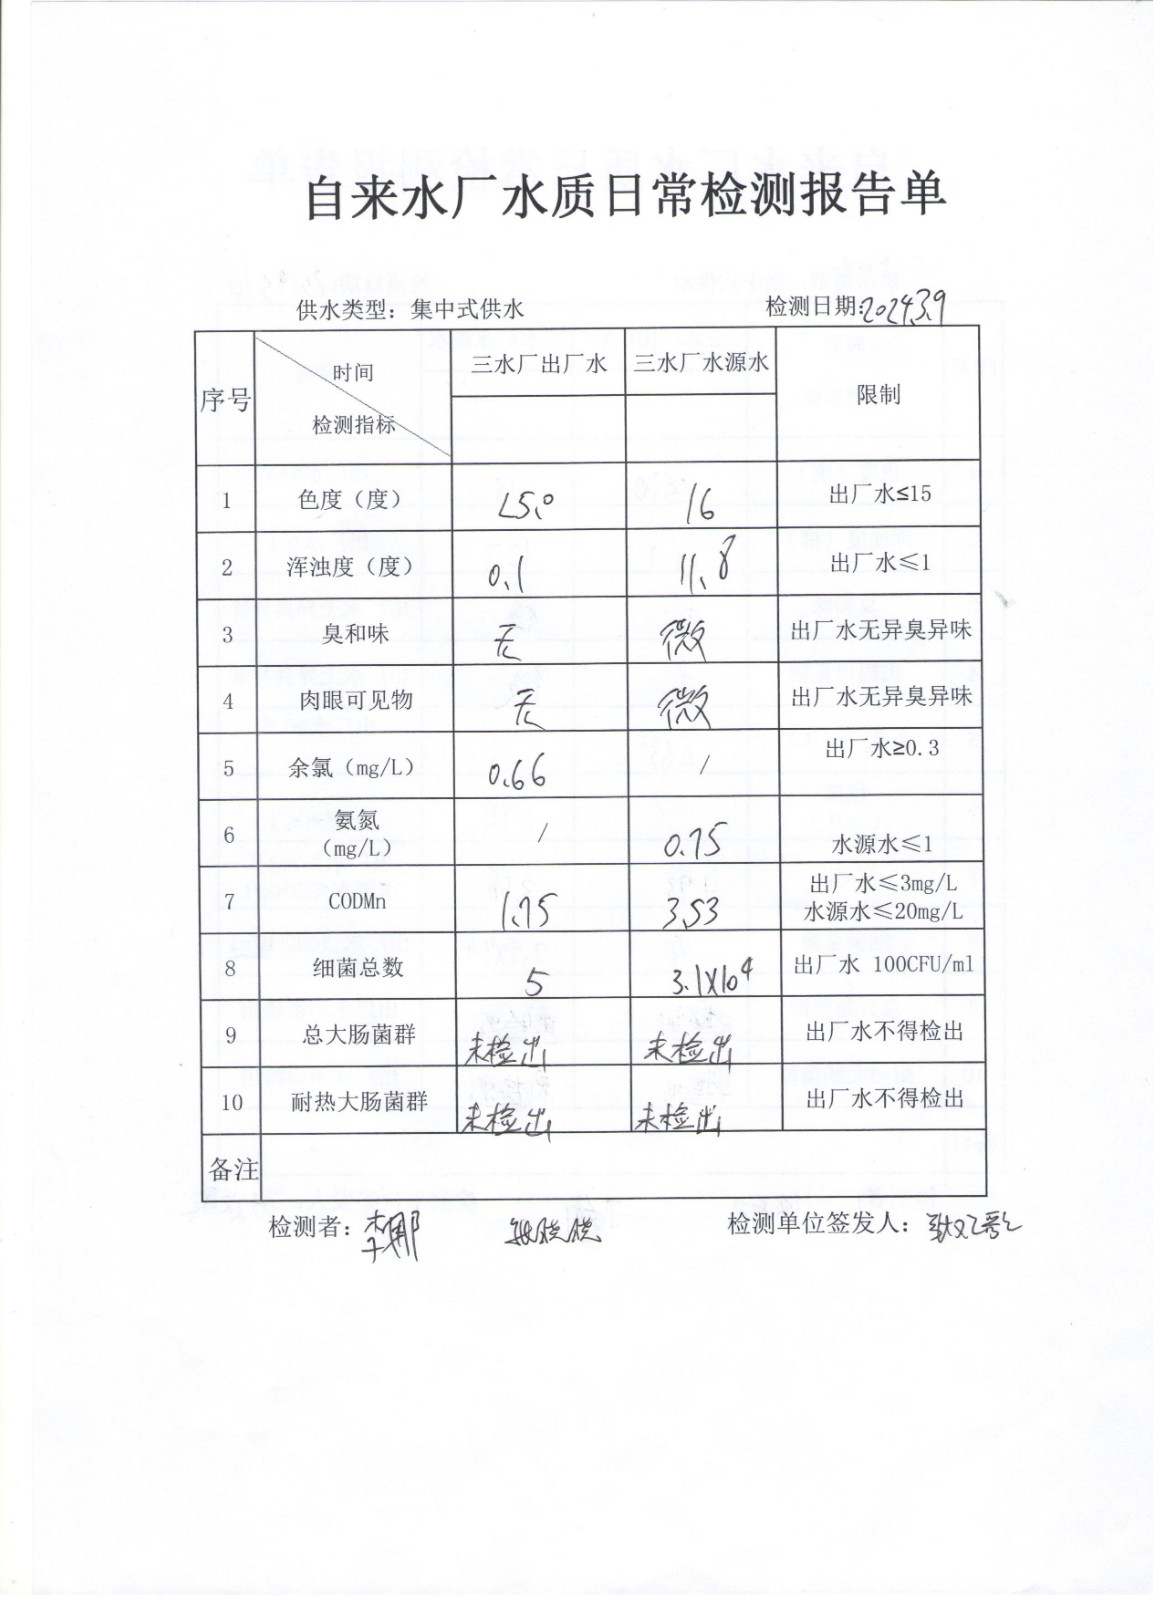 自来水厂水质日常检测报告单
供水类型：集中式供水 检测日期:2024.3.9
序号 时间 检测指标 三水厂出厂水 三水厂水源水 限制
1 色度（度） <5.0 16 出厂水≤15
2 浑浊度（度） 0.1 11.8 出厂水≤1
3 臭和味 无 微 出厂水无异臭异味
4 肉眼可见物 无 微 出厂水无异臭异味
5 余氯（mg/L） 0.66 / 出厂水≥0.3
6 氨氮 （mg/L） / 0.75 水源水≤1
7 CODMn 1.75 3.53 出厂水≤3mg/L 水源水≤20mg/L
8 细菌总数 5 3.1×10⁴ 出厂水 100CFU/ml
9 总大肠菌群 未检出 未检出 出厂水不得检出
10 耐热大肠菌群 未检出 未检出 出厂水不得检出
备注
检测者：李娜 检测单位签发人：